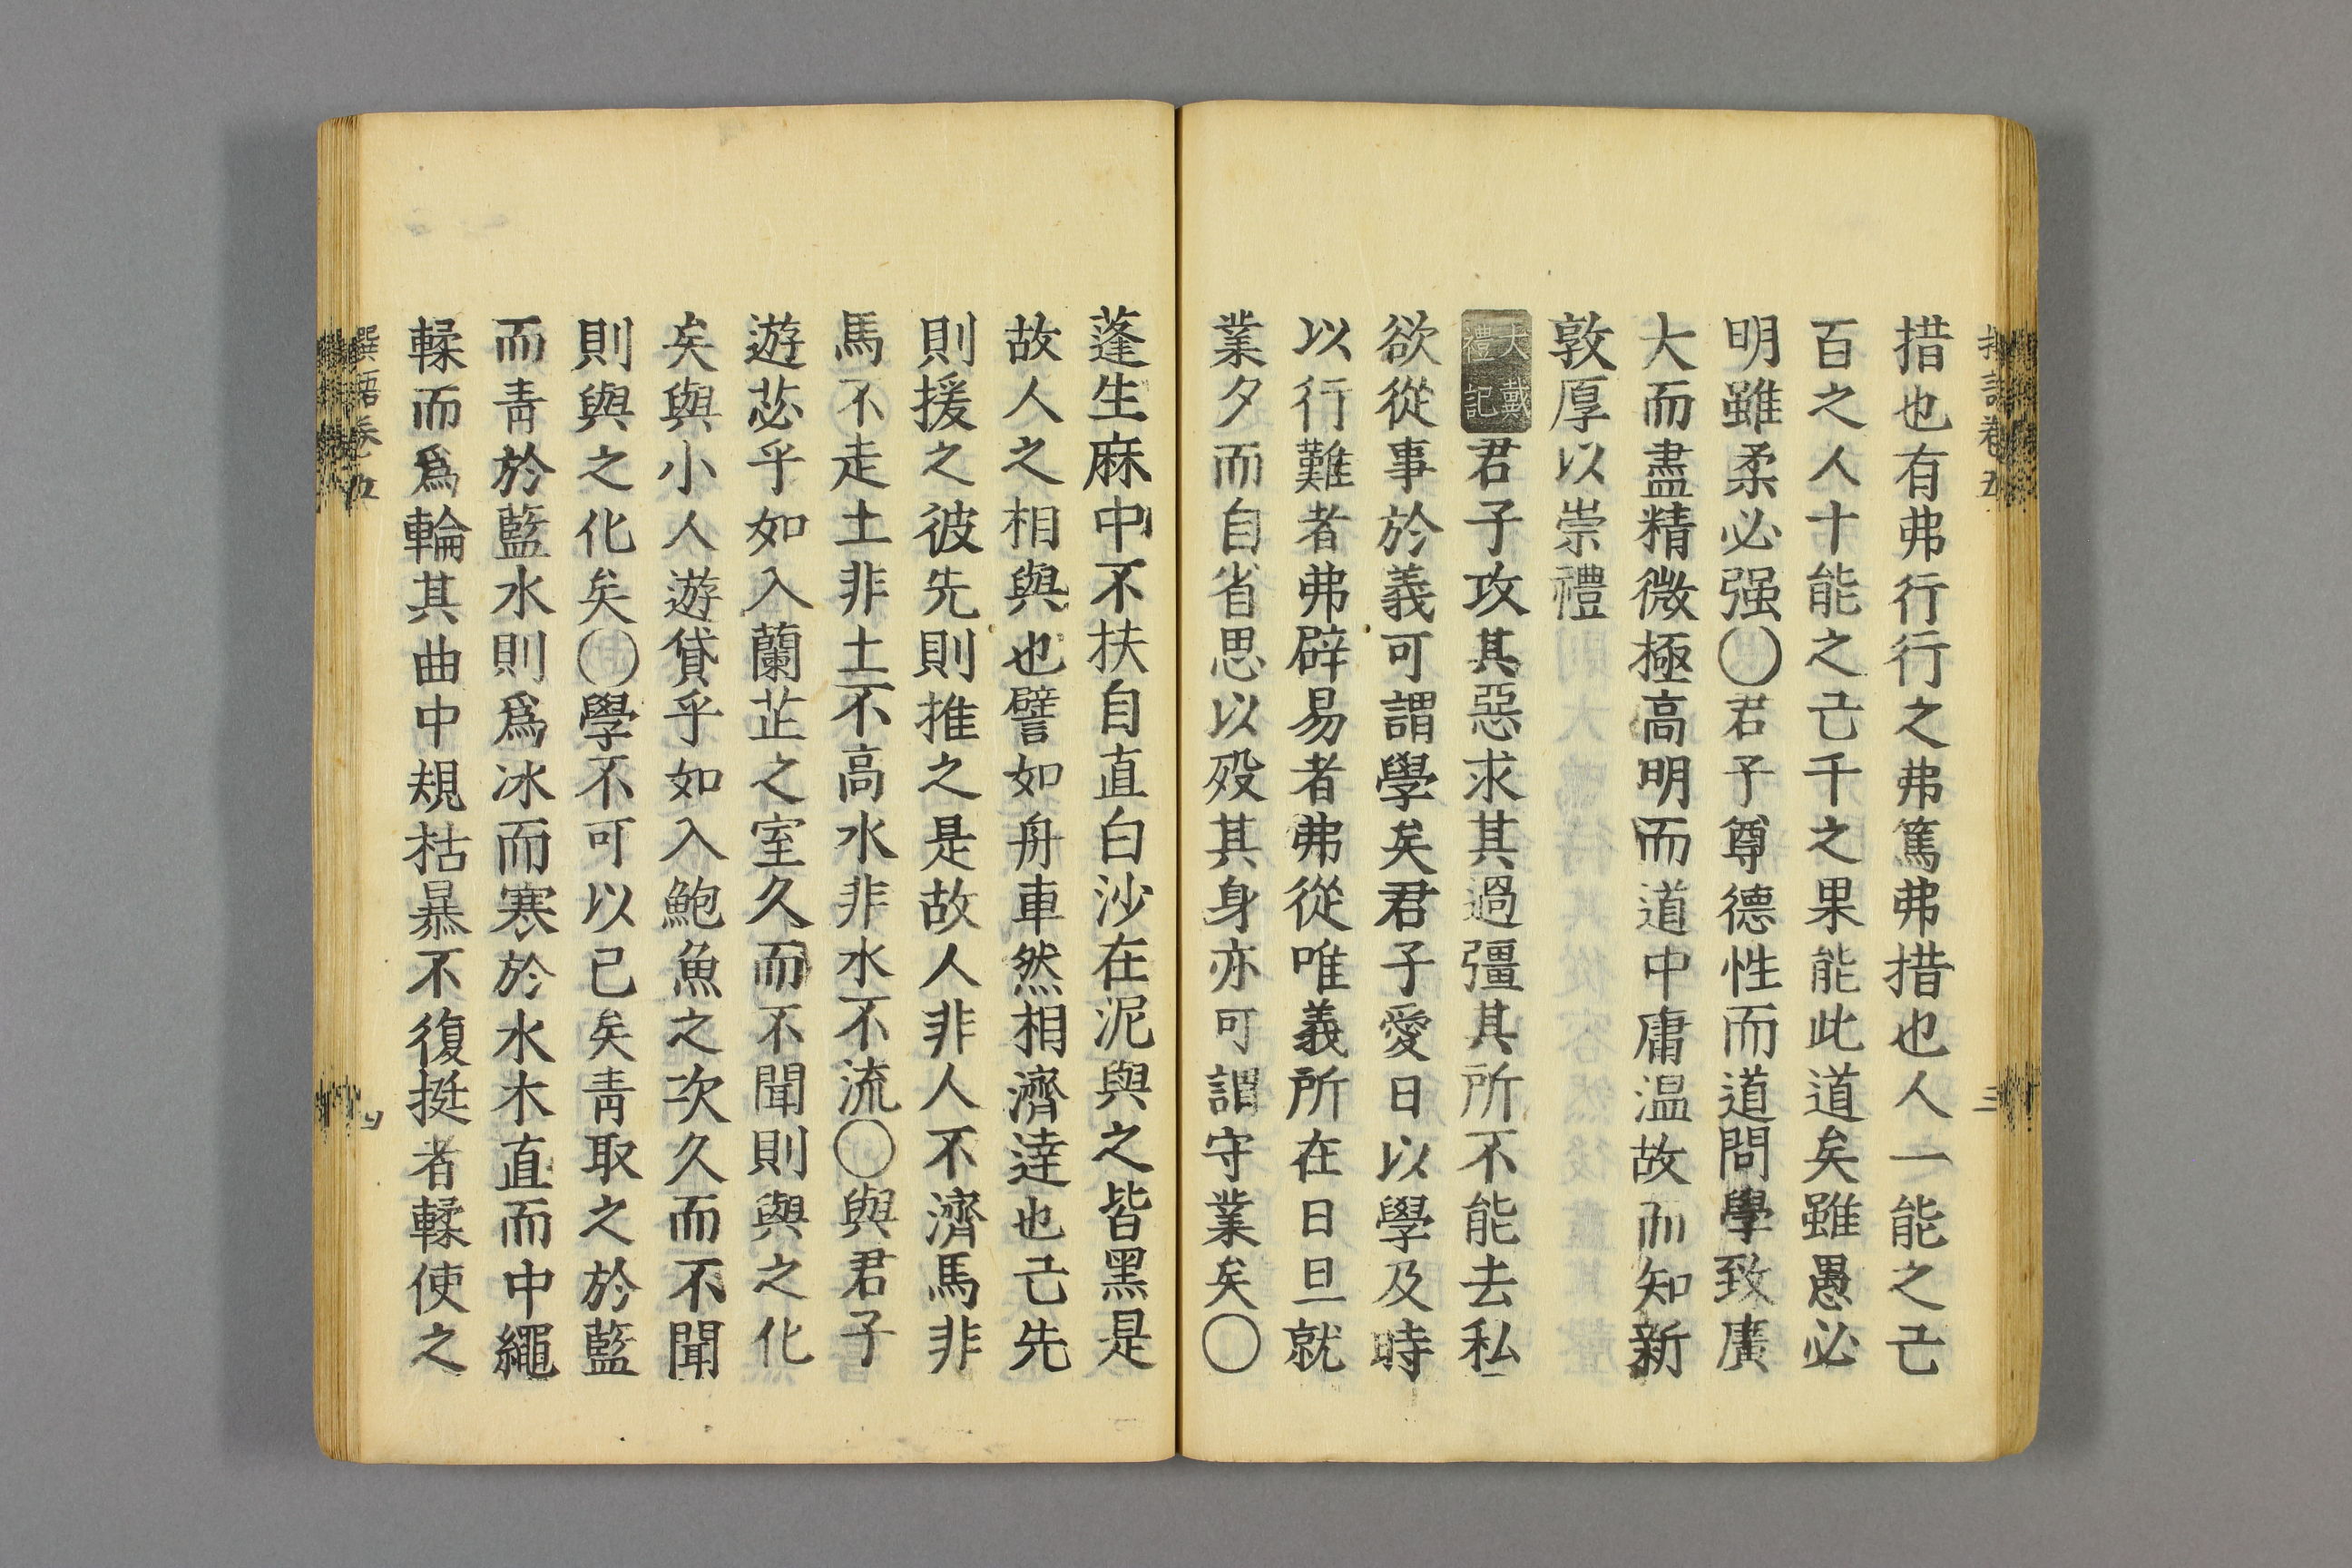 措也有弗行行之弗篤弗措也人一能之己
百之人十能之己千之果能此道矣雖愚必
明雖柔必强〇君子尊德性而道問學致廣
大而盡精微極高明而道中庸温故而知新
敦厚以崇禮
大戴禮記君子攻其惡求其過彊其所不能去私
欲從事於義可謂學矣君子愛日以學及時
以行難者弗辟易者弗從唯義所在日旦就
業夕而自省思以殁其身亦可謂守業矣〇
蓬生麻中不扶自直白沙在泥與之皆黑是
故人之相與也譬如舟車然相濟達也己先
則援之彼先則推之是故人非人不濟馬非
馬不走土非土不高水非水不流〇與君子
遊苾乎如入蘭芷之室久而不聞則與之化
矣與小人遊貸乎如入鮑魚之次久而不聞
則與之化矣〇學不可以已矣靑取之於藍
而靑於藍水則爲冰而寒於水木直而中繩
輮而爲輪其曲中規枯暴不復挺者輮使之
撰語卷五